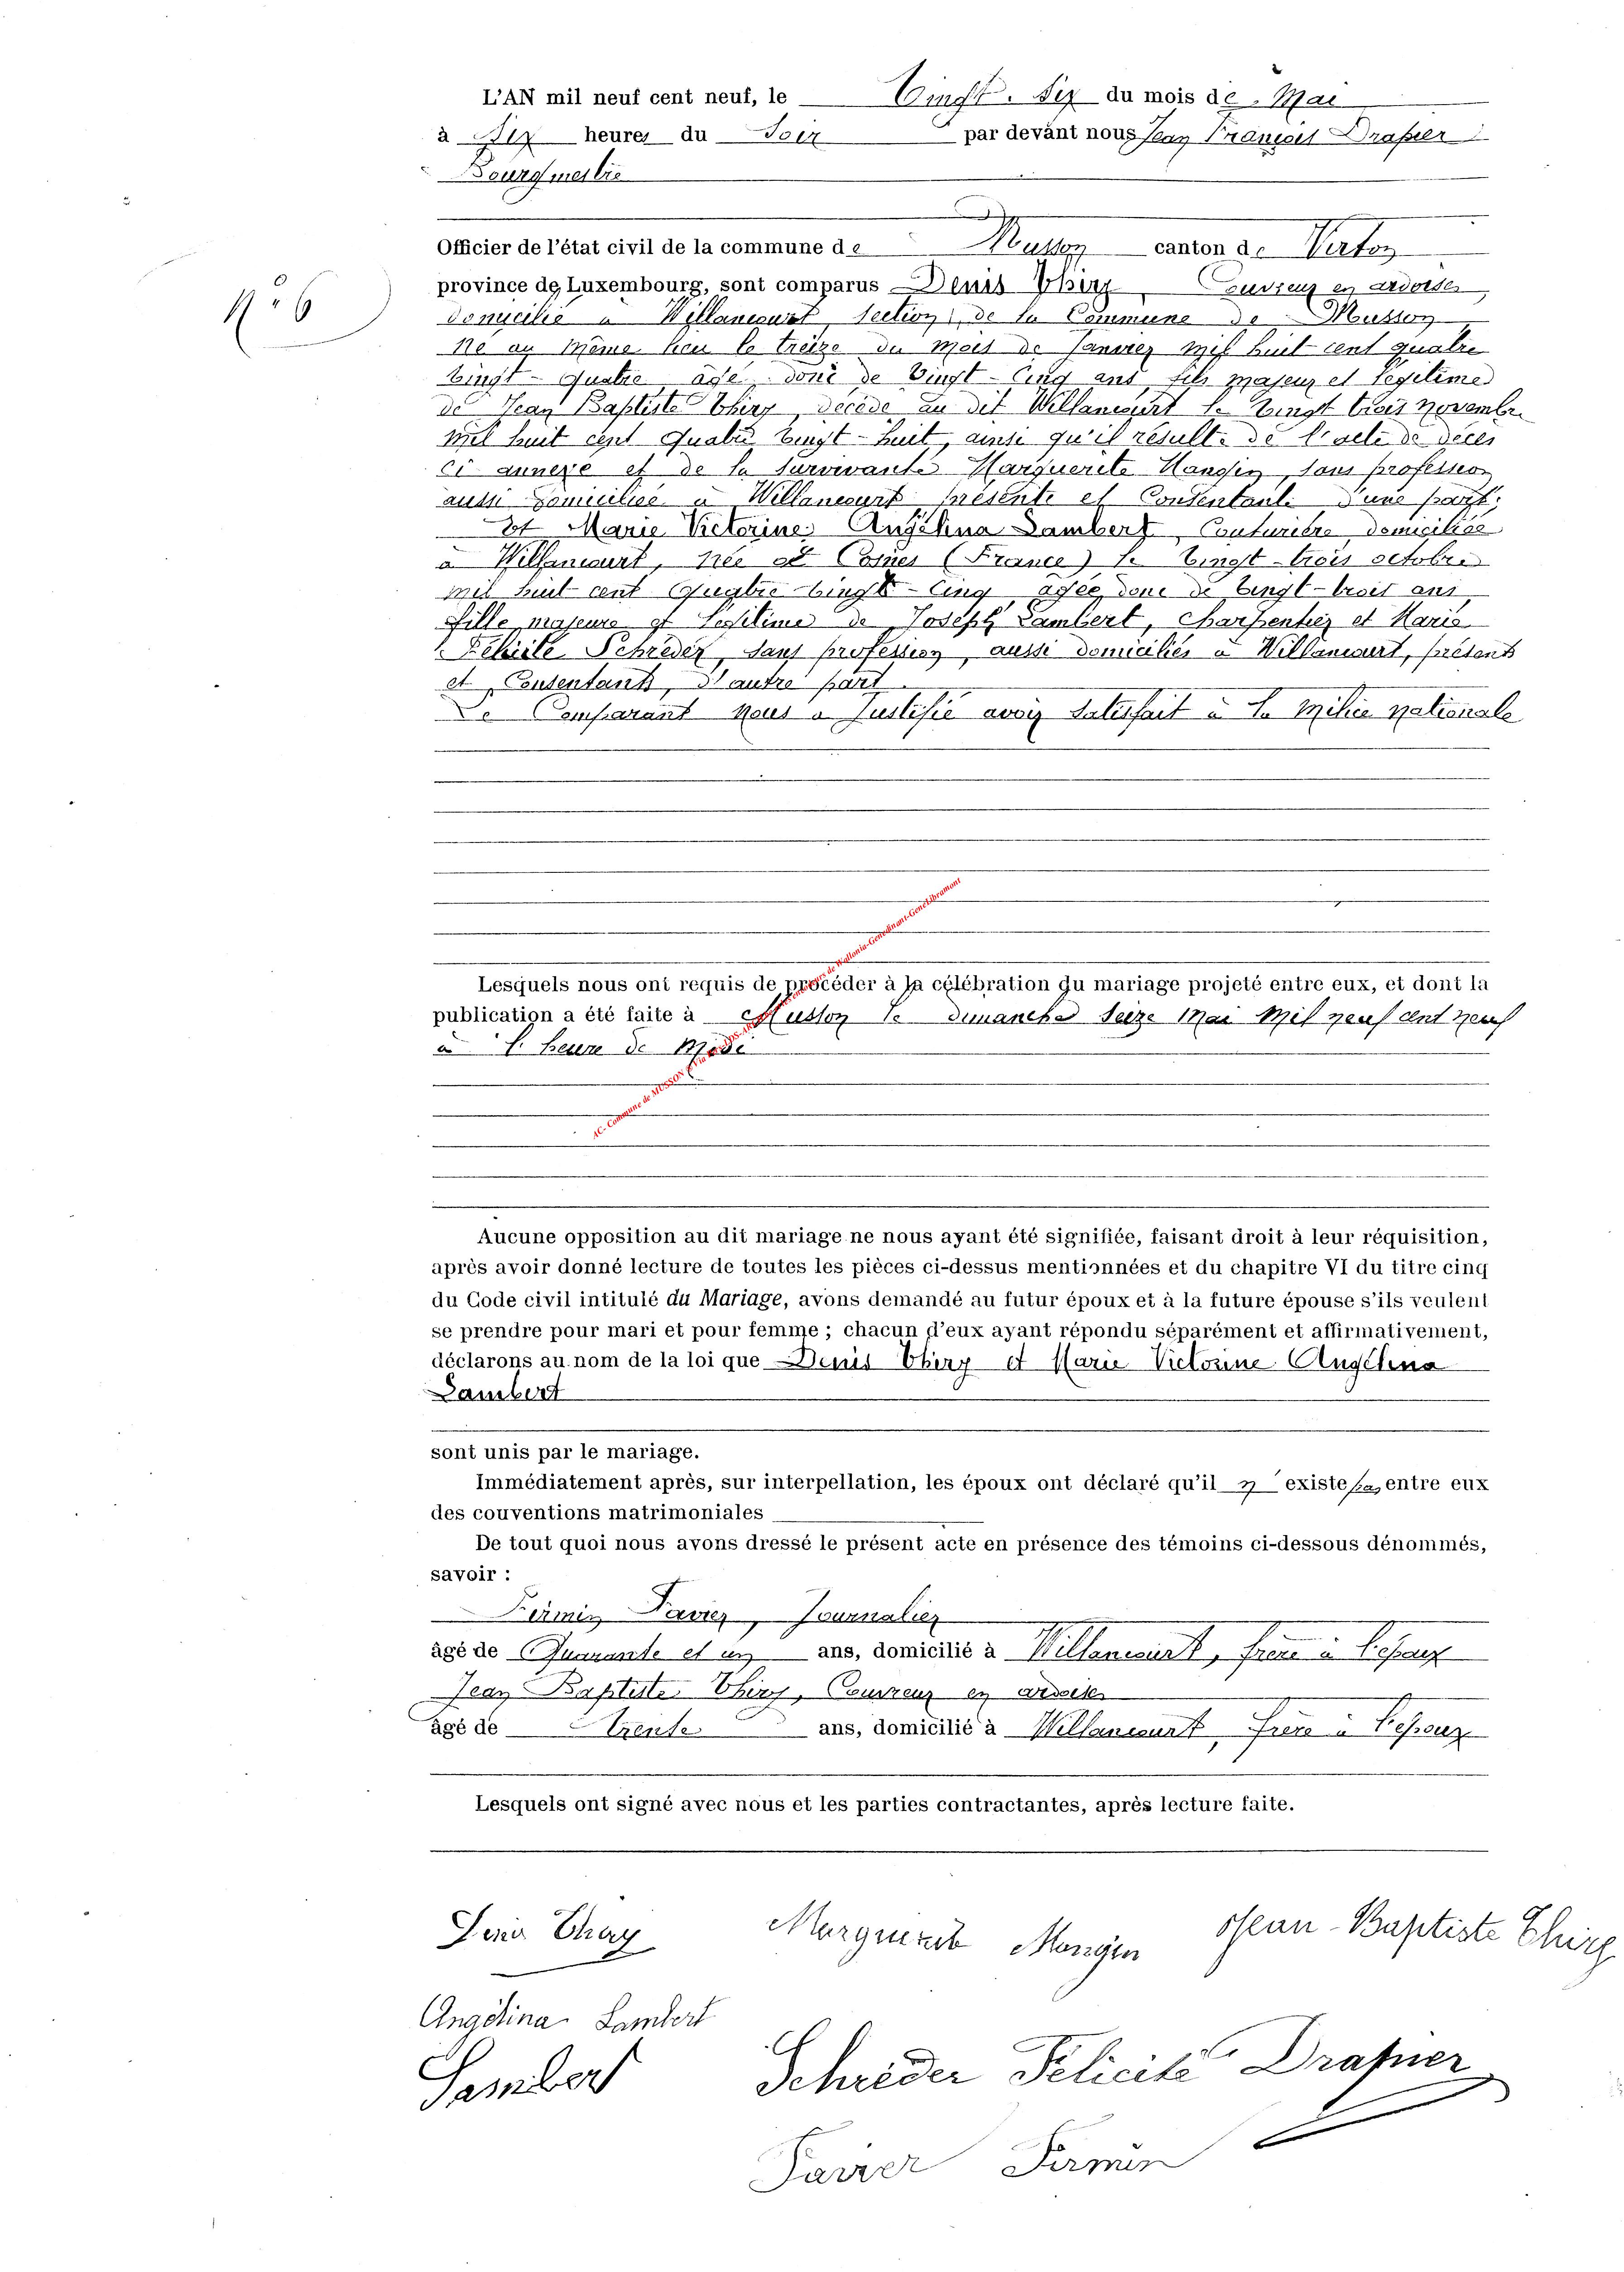 L'AN mil neuf cent neuf, le Vingt-Six du mois de Mai
à Six heures du Soir par devant nous Jean François Drapier
Bourgmestre
Officier de l'état civil de la commune de Musson canton de Virton
N° 6
province de Luxembourg, sont comparus Denis Thiry, Couvreur en ardoises
domicilié à Willancourt, section de la Commune de Musson
Né au même lieu le treize du mois de Janvier mil huit cent quatre
vingt-quatre, âgé donc de Vingt-Cinq ans, fils majeur et légitime
de Jean Baptiste Thiry, décédé au dit Willancourt le Vingt trois novembre
mil huit cent quatre vingt-huit, ainsi qu'il résulte de l'acte de décès
ci annexé et de la survivante Marguerite Mangin, sans profession
aussi domiciliée à Willancourt présente et Consentante d'une part;
Et Marie Victorine Angélina Lambert, Couturière, domiciliée
à Willancourt, née à Cosnes (France) le Vingt-trois octobre
mil huit cent Quatre-vingt-Cinq, âgée donc de Vingt-trois ans
Fille majeure et légitime de Joseph Lambert, Charpentier et Marie
Félicité Schréder, sans profession, aussi domiciliés à Willancourt, présents
et Consentants, d'autre part.
Le Comparant nous a justifié avoir satisfait à la milice nationale
Lesquels nous ont requis de procéder à la célébration du mariage projeté entre eux, et dont la
publication a été faite à Musson le dimanche seize Mai Mil neuf cent neuf
à l'heure de Midi
AC- Commune de MUSSON
Aucune opposition au dit mariage ne nous ayant été signifiée, faisant droit à leur réquisition,
après avoir donné lecture de toutes les pièces ci-dessus mentionnées et du chapitre VI du titre cinq
du Code civil intitulé du Mariage, avons demandé au futur époux et à la future épouse s'ils veulent
se prendre pour mari et pour femme ; chacun d'eux ayant répondu séparément et affirmativement,
déclarons au nom de la loi que Denis Thiry et Marie Victorine Angélina
Lambert
sont unis par le mariage.
Immédiatement après, sur interpellation, les époux ont déclaré qu'il n existe pas entre eux
des couventions matrimoniales
De tout quoi nous avons dressé le présent acte en présence des témoins ci-dessous dénommés,
savoir :
Firmin Pavier, Journalier
âgé de Quarante et un ans, domicilié à Willancourt, frère à l'époux
Jean Baptiste Thiry, Couvreur en ardoises
âgé de Trente ans, domicilié à Willancourt, Frère à l'époux
Lesquels ont signé avec nous et les parties contractantes, après lecture faite.
Denis Thiry Marguerite Mangin Jean-Baptiste Thiry
Angélina Lambert
Lambert Schréder Félicité Drapier
Pavier Firmin